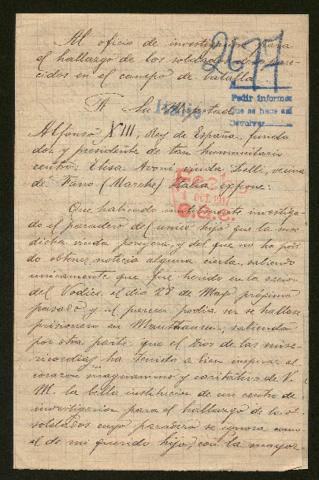 Al oficio de investigación para
el hallazgo de los soldados desapare-
cidos en el campo de batalla.
2677
Italia
Pedir informes
que se hace así
devolver
A Su Majestad
Alfonso XIII, Rey de España, funda
dor y presidente de tan humanitario
centro: Elisa viuda vecina
de Fano (Marche) Italia expone:
OCT. 1917
Que habiendo investiga-
do el paradero del único hijo que la sus
dicha viuda poseyera, y del que no ha podi
do obtener noticia alguna cierta, sabiendo
únicamente que fué herido en la
del Vodice, el día 28 de Mayo próximo
pasado y al parecer podía ser se hallase
prisionero en Mauthausen, sabiendo
por otra parte que el Dios de las mise-
ricordias ha tenido a bien inspirar al
corazon magnanimo y caritativo de V.
M. la bella institucion de un centro de
investigacion para el hallazgo de los
soldados cuyo paradero se ignora como
el de mi querido hijo, con la mayor